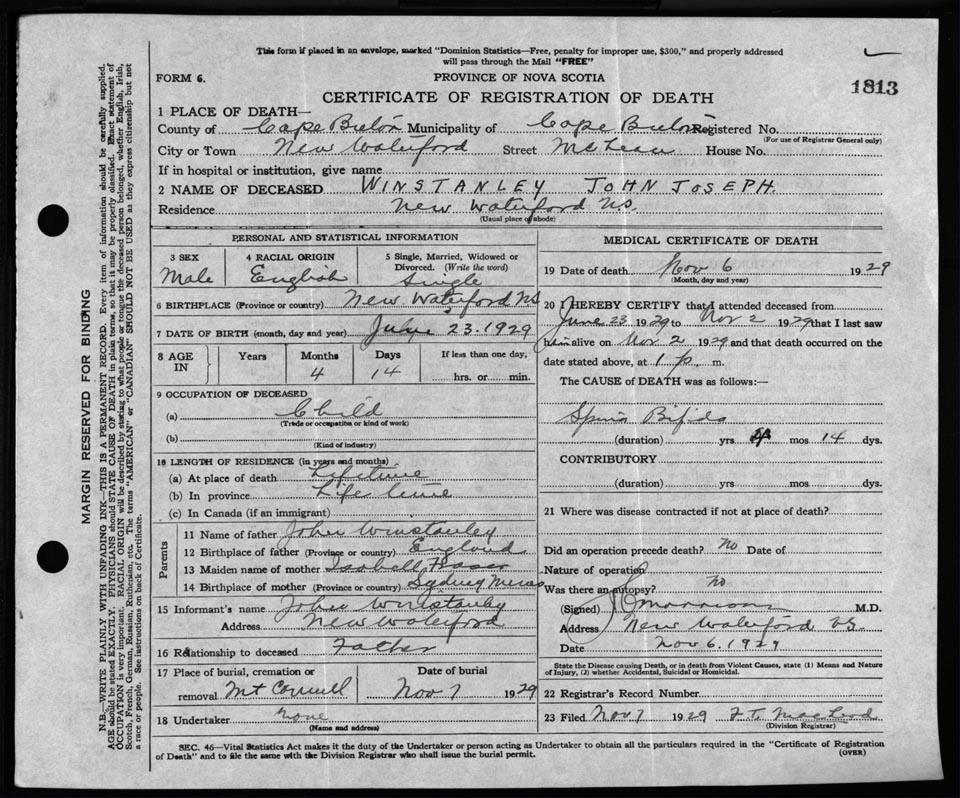 This form if placed in an envelope, marked "Dominion Statistics—Free, penalty for improper use, $300," and properly addressed
will pass through the Mail "FREE"
FORM 6.
PROVINCE OF NOVA SCOTIA
1813
CERTIFICATE OF REGISTRATION OF DEATH
1 PLACE OF DEATH—
County of Cape Breton Municipality of Cape Breton Registered No.
(For use of Registrar General only)
City or Town New Waterford Street McLean House No.
If in hospital or institution, give name
2 NAME OF DECEASED WINSTANLEY JOHN JOSEPH.
Residence New Waterford N.S.
(Usual place of abode)
PERSONAL AND STATISTICAL INFORMATION
3 SEX 4 RACIAL ORIGIN 5 Single, Married, Widowed or
Divorced. (Write the word)
Male English Single
6 BIRTHPLACE (Province or country) New Waterford NS
7 DATE OF BIRTH (month, day and year) July 23. 1929
8 AGE IN Years Months Days If less than one day,
4 14 hrs. or min.
9 OCCUPATION OF DECEASED
(a) Child
(Trade or occupation or kind of work)
(b)
(Kind of industry)
10 LENGTH OF RESIDENCE (in years and months)
(a) At place of death Lifetime
(b) In province Life time
(c) In Canada (if an immigrant)
Parents
11 Name of father John Winstanley
12 Birthplace of father (Province or country) England
13 Maiden name of mother Isabell Fraser
14 Birthplace of mother (Province or country) Sydney Mines
15 Informant's name John Winstanley
Address New Waterford
16 Relationship to deceased Father
17 Place of burial, cremation or Date of burial
removal Mt Nov 7 1929
18 Undertaker None
(Name and address)
MEDICAL CERTIFICATE OF DEATH
19 Date of death Nov 6 1929
(Month, day and year)
20 I HEREBY CERTIFY that I attended deceased from
June 23 1929 to Nov 2 1929 that I last saw
him alive on Nov 2 1929 and that death occurred on the
date stated above, at 1 p. m.
The CAUSE of DEATH was as follows:—
Spina Bifida
(duration) yrs 4 mos 14 dys.
CONTRIBUTORY
(duration) yrs. mos. dys.
21 Where was disease contracted if not at place of death?
Did an operation precede death? No Date of
Nature of operation
Was there an autopsy? no
(Signed) Morrison M.D.
Address New Waterford NS.
Date Nov 6. 1929
State the Disease causing Death, or in death from Violent Causes, state (1) Means and Nature
of Injury, (2) whether Accidental, Suicidal or Homicidal.
22 Registrar's Record Number
23 Filed Nov 7 1929 F.T. MacLeod
(Division Registrar)
SEC. 46—Vital Statistics Act makes it the duty of the Undertaker or person acting as Undertaker to obtain all the particulars required in the "Certificate of Registration
of Death" and to file the same with the Division Registrar who shall issue the burial permit.
(OVER)
MARGIN RESERVED FOR BINDING
N.B.—WRITE PLAINLY WITH UNFADING INK—THIS IS A PERMANENT RECORD. Every item of information should be carefully supplied.
AGE should be stated EXACTLY. PHYSICIANS should STATE CAUSE OF DEATH in plain terms, so that it may be properly classified. Exact statement of
OCCUPATION is very important. RACIAL ORIGIN will be described by stating to what people or tongue the deceased person belonged, whether English, Irish,
Scotch, French, German, Russian, Ruthenian, etc. The terms "AMERICAN" or "CANADIAN" SHOULD NOT BE USED as they express citizenship but not
a race or people. See instructions on back of Certificate.